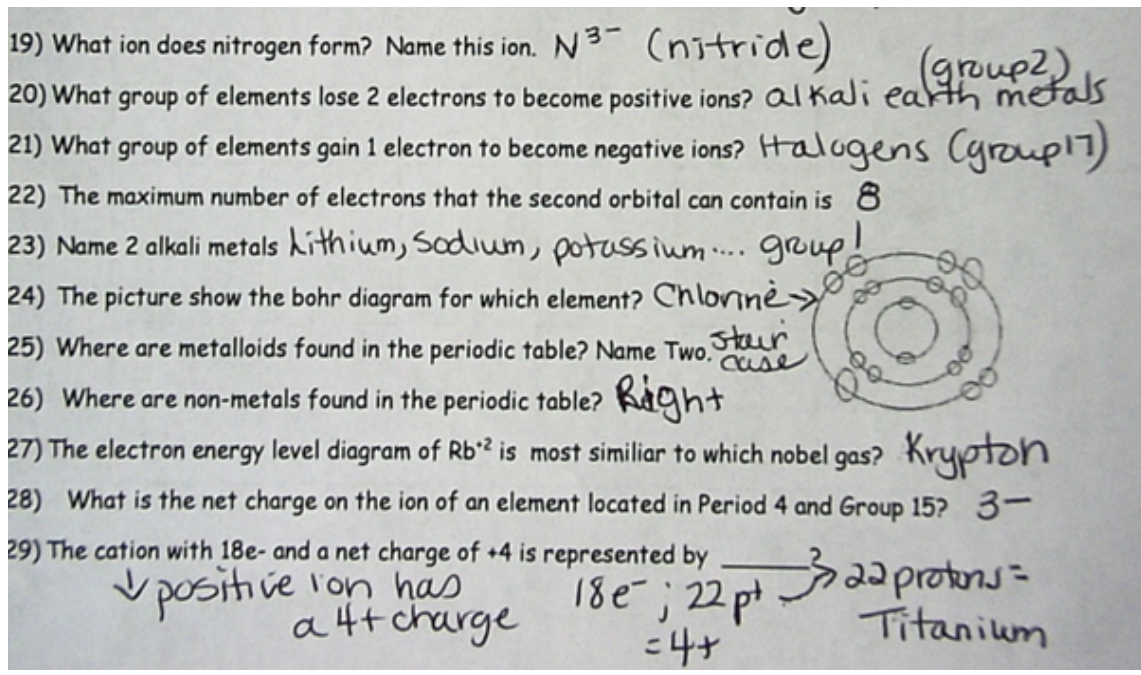 19) What ion does nitrogen form? Name this ion. N³⁻ (nitride)
(group2)
20) What group of elements lose 2 electrons to become positive ions? alkali earth metals
21) What group of elements gain 1 electron to become negative ions? Halogens (group17)
22) The maximum number of electrons that the second orbital can contain is 8
23) Name 2 alkali metals Lithium, Sodium, potassium.... group 1
24) The picture show the bohr diagram for which element? Chlorine →
25) Where are metalloids found in the periodic table? Name Two. stair
case
26) Where are non-metals found in the periodic table? Right
27) The electron energy level diagram of Rb⁺² is most similiar to which nobel gas? Krypton
28) What is the net charge on the ion of an element located in Period 4 and Group 15? 3-
29) The cation with 18e- and a net charge of +4 is represented by ______?
↓ positive ion has
a 4+ charge
18e⁻ ; 22 p⁺
= 4+
22 protons =
Titanium